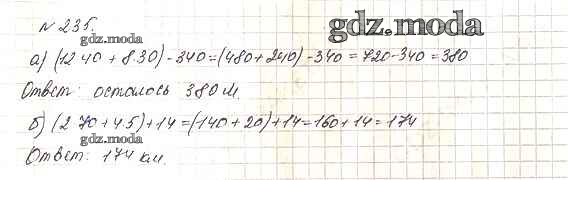 № 235.
gdz.moda
а) (12·40 + 8·30) - 340 = (480 + 240) - 340 = 720 - 340 = 380
gdz.moda
Ответ: осталось 380 м.
б) (2·70 + 4·5) + 14 = (140 + 20) + 14 = 160 + 14 = 174
gdz.moda
Ответ: 174 км.